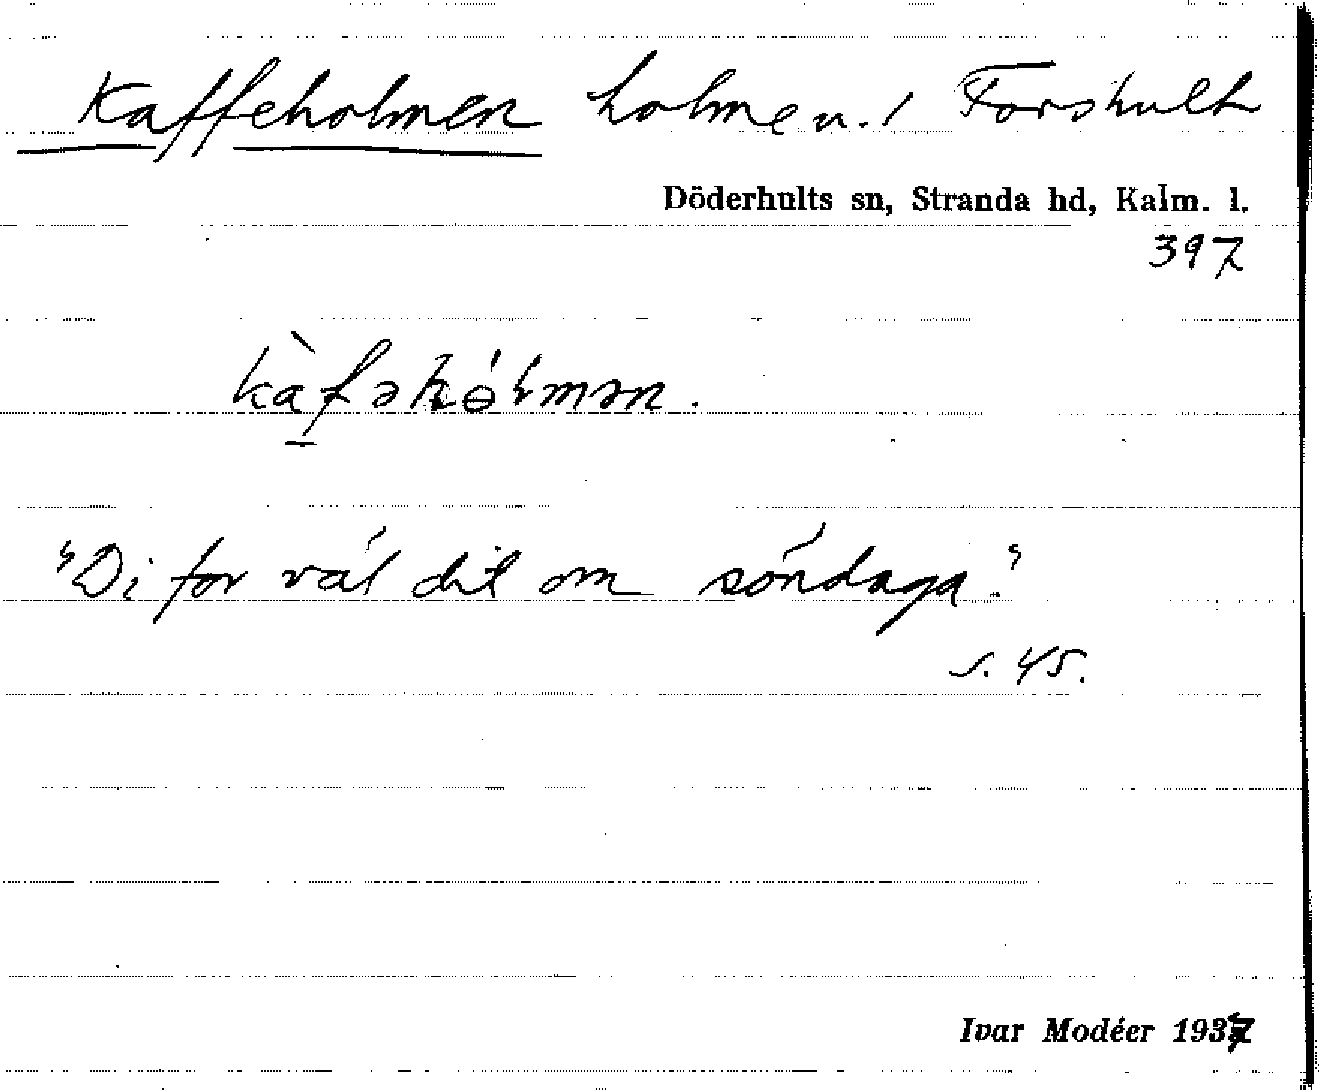 Kaffeholmen holme u. / Forshult
Döderhults sn, Stranda hd, Kalm. l.
397
kàfəhólmən.
"Di for väl dit om söndaga."
s. 45.
Ivar Modéer 1937